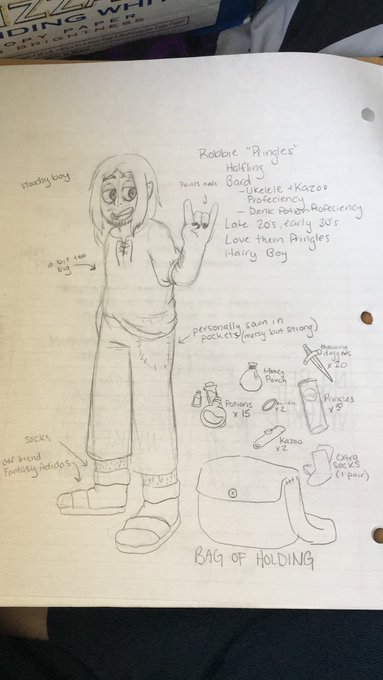 DING WHI
PY PAPER
BRIGHTNESS
Robbie "Pringles"
Halfling
Bard
- Ukelele + Kazoo
Profeciency
- Dank Potion Profeciency
Late 20's, early 30's
Love them Pringles
Hairy Boy
stoudly boy
Paints nails
a bit too
big
personally sewn in
pockets (messy but strong)
throwing
daggers
x 20
Money
Pouch
Potions
x 15
x 2
Pringles
x 5
Kazoo
x 2
extra
socks
(1 pair)
socks
Off brand
Fantasy Adidas
BAG OF HOLDING